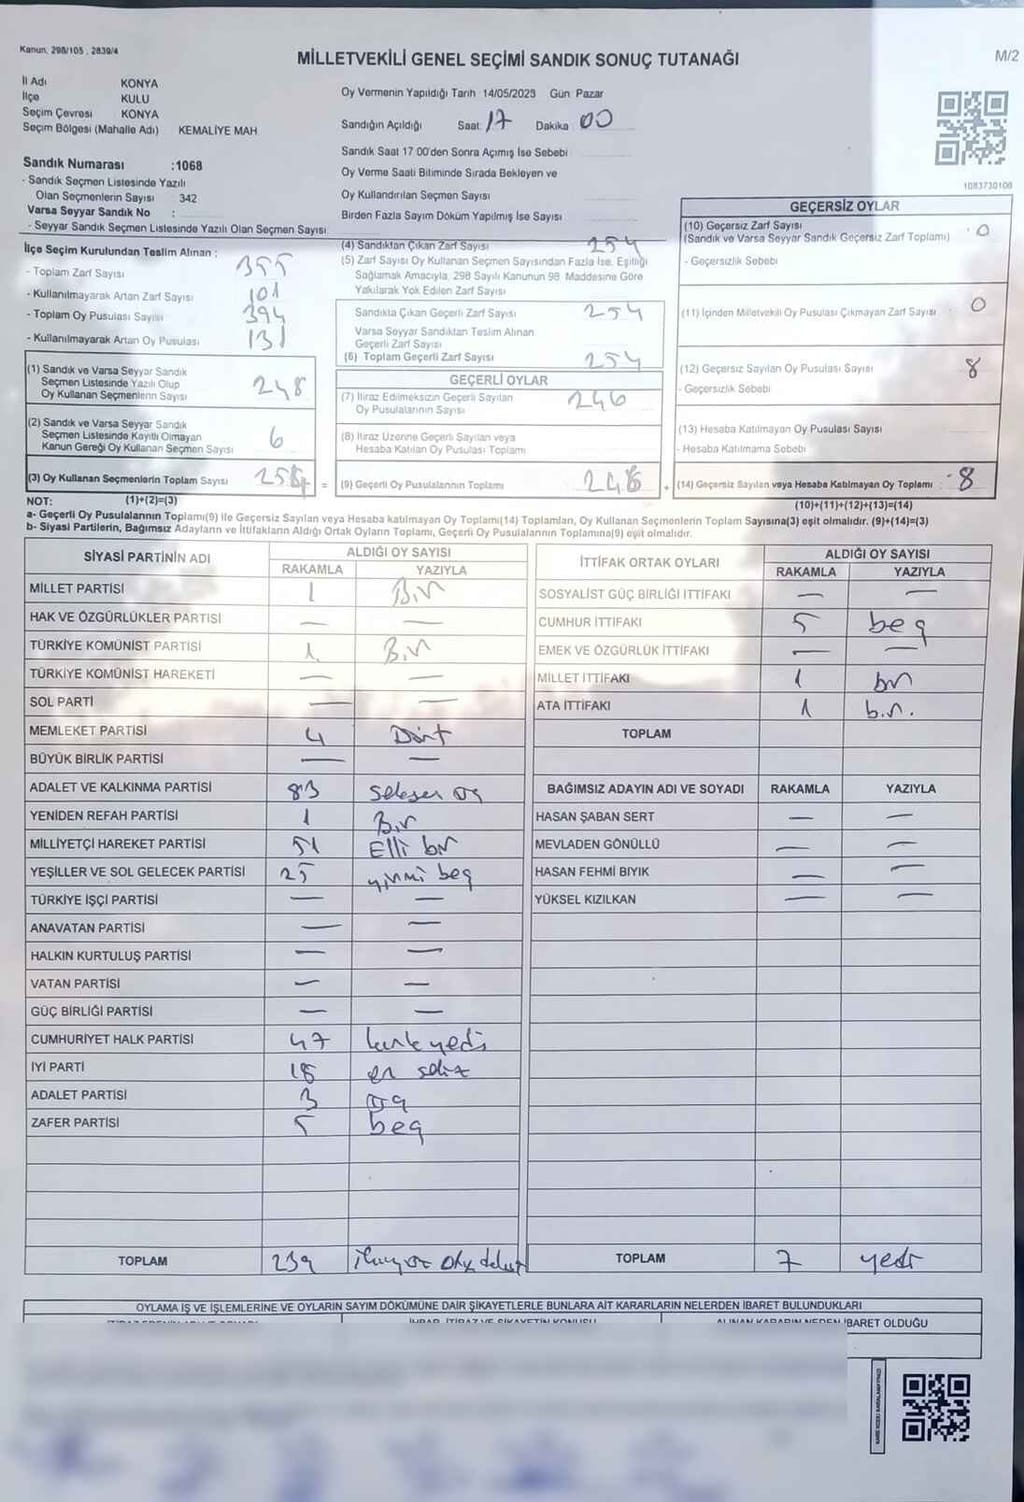 Kanun. 298/105 : 2839/4
MİLLETVEKİLİ GENEL SEÇİMİ SANDIK SONUÇ TUTANAĞI
M/2
İl Adı KONYA
İlçe KULU
Seçim Çevresi KONYA
Seçim Bölgesi (Mahalle Adı) KEMALİYE MAH
Oy Vermenin Yapıldığı Tarih 14/05/2023 Gün Pazar
Sandığın Açıldığı Saat 17 Dakika 00
Sandık Saat 17 00'den Sonra Açımış İse Sebebi
Oy Verme Saati Bitiminde Sırada Bekleyen ve
Oy Kullandırılan Seçmen Sayısı
Birden Fazla Sayım Döküm Yapılmış İse Sayısı
1083730108
Sandık Numarası :1068
- Sandık Seçmen Listesinde Yazılı
Olan Seçmenlerin Sayısı 342
Varsa Seyyar Sandık No :
- Seyyar Sandık Seçmen Listesinde Yazılı Olan Seçmen Sayısı
İlçe Seçim Kurulundan Teslim Alınan :
- Toplam Zarf Sayısı 355
- Kullanılmayarak Artan Zarf Sayısı 101
- Toplam Oy Pusulası Sayısı 394
- Kullanılmayarak Artan Oy Pusulası 131
(1) Sandık ve Varsa Seyyar Sandık
Seçmen Listesinde Yazılı Olup
Oy Kullanan Seçmenlerin Sayısı 248
(2) Sandık ve Varsa Seyyar Sandık
Seçmen Listesinde Kayıtlı Olmayan
Kanun Gereği Oy Kullanan Seçmen Sayısı 6
(3) Oy Kullanan Seçmenlerin Toplam Sayısı 254 =
(4) Sandıktan Çıkan Zarf Sayısı 254
(5) Zarf Sayısı Oy Kullanan Seçmen Sayısından Fazla İse, Eşitliği
Sağlamak Amacıyla, 298 Sayılı Kanunun 98 Maddesine Göre
Yakılarak Yok Edilen Zarf Sayısı
Sandıkta Çıkan Geçerli Zarf Sayısı 254
Varsa Seyyar Sandıktan Teslim Alınan
Geçerli Zarf Sayısı
(6) Toplam Geçerli Zarf Sayısı 254
GEÇERLİ OYLAR
(7) İtiraz Edilmeksizin Geçerli Sayılan
Oy Pusulalarının Sayısı 246
(8) İtiraz Üzerine Geçerli Sayılan veya
Hesaba Katılan Oy Pusulası Toplamı
(9) Geçerli Oy Pusulalarının Toplamı 246 +
GEÇERSİZ OYLAR
(10) Geçersiz Zarf Sayısı 0
(Sandık ve Varsa Seyyar Sandık Geçersiz Zarf Toplamı)
- Geçersizlik Sebebi
(11) İçinden Milletvekili Oy Pusulası Çıkmayan Zarf Sayısı 0
(12) Geçersiz Sayılan Oy Pusulası Sayısı 8
- Geçersizlik Sebebi
(13) Hesaba Katılmayan Oy Pusulası Sayısı
- Hesaba Katılmama Sebebi
(14) Geçersiz Sayılan veya Hesaba Katılmayan Oy Toplamı 8
NOT: (1)+(2)=(3)
(10)+(11)+(12)+(13)=(14)
a- Geçerli Oy Pusulalarının Toplamı(9) ile Geçersiz Sayılan veya Hesaba katılmayan Oy Toplamı(14) Toplamları, Oy Kullanan Seçmenlerin Toplam Sayısına(3) eşit olmalıdır. (9)+(14)=(3)
b- Siyasi Partilerin, Bağımsız Adayların ve İttifakların Aldığı Ortak Oyların Toplamı, Geçerli Oy Pusulalarının Toplamına(9) eşit olmalıdır.
SİYASİ PARTİNİN ADI
ALDIĞI OY SAYISI
RAKAMLA YAZIYLA
MİLLET PARTİSİ 1 Bir
HAK VE ÖZGÜRLÜKLER PARTİSİ — —
TÜRKİYE KOMÜNİST PARTİSİ 1 Bir
TÜRKİYE KOMÜNİST HAREKETİ — —
SOL PARTİ — —
MEMLEKET PARTİSİ 4 Dört
BÜYÜK BİRLİK PARTİSİ — —
ADALET VE KALKINMA PARTİSİ 83 seksen üç
YENİDEN REFAH PARTİSİ 1 Bir
MİLLİYETÇİ HAREKET PARTİSİ 51 Elli bir
YEŞİLLER VE SOL GELECEK PARTİSİ 25 yirmi beş
TÜRKİYE İŞÇİ PARTİSİ — —
ANAVATAN PARTİSİ — —
HALKIN KURTULUŞ PARTİSİ — —
VATAN PARTİSİ — —
GÜÇ BİRLİĞİ PARTİSİ — —
CUMHURİYET HALK PARTİSİ 47 kırk yedi
İYİ PARTİ 18 on sekiz
ADALET PARTİSİ 3 üç
ZAFER PARTİSİ 5 beş
TOPLAM 239 ikiyüz otuz dokuz
İTTİFAK ORTAK OYLARI
ALDIĞI OY SAYISI
RAKAMLA YAZIYLA
SOSYALİST GÜÇ BİRLİĞİ İTTİFAKI — —
CUMHUR İTTİFAKI 5 beş
EMEK VE ÖZGÜRLÜK İTTİFAKI — —
MİLLET İTTİFAKI 1 bir
ATA İTTİFAKI 1 bir.
TOPLAM
BAĞIMSIZ ADAYIN ADI VE SOYADI RAKAMLA YAZIYLA
HASAN ŞABAN SERT — —
MEVLADEN GÖNÜLLÜ — —
HASAN FEHMİ BIYIK — —
YÜKSEL KIZILKAN — —
TOPLAM 7 yedi
OYLAMA İŞ VE İŞLEMLERİNE VE OYLARIN SAYIM DÖKÜMÜNE DAİR ŞİKAYETLERLE BUNLARA AİT KARARLARIN NELERDEN İBARET BULUNDUKLARI
İHBAR, İTİRAZ VE ŞİKAYETİN KONUSU
ALINAN KARARIN NEDEN İBARET OLDUĞU